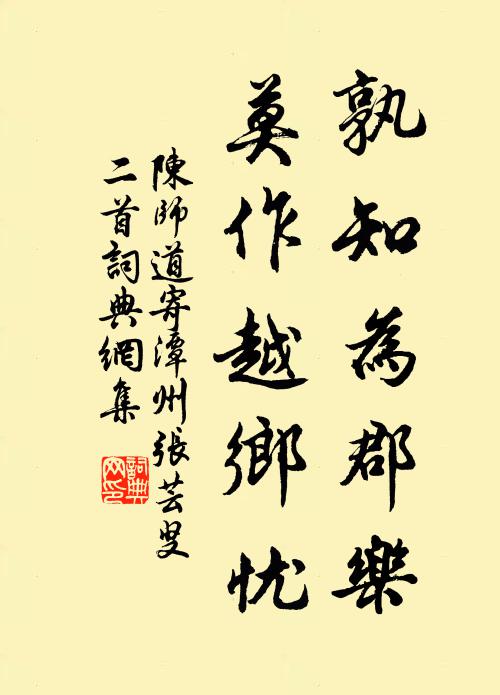 孰知為郡樂
莫作越鄉忧
陳師道寄潭州張芸叟
二首詞典網集
詞典网印